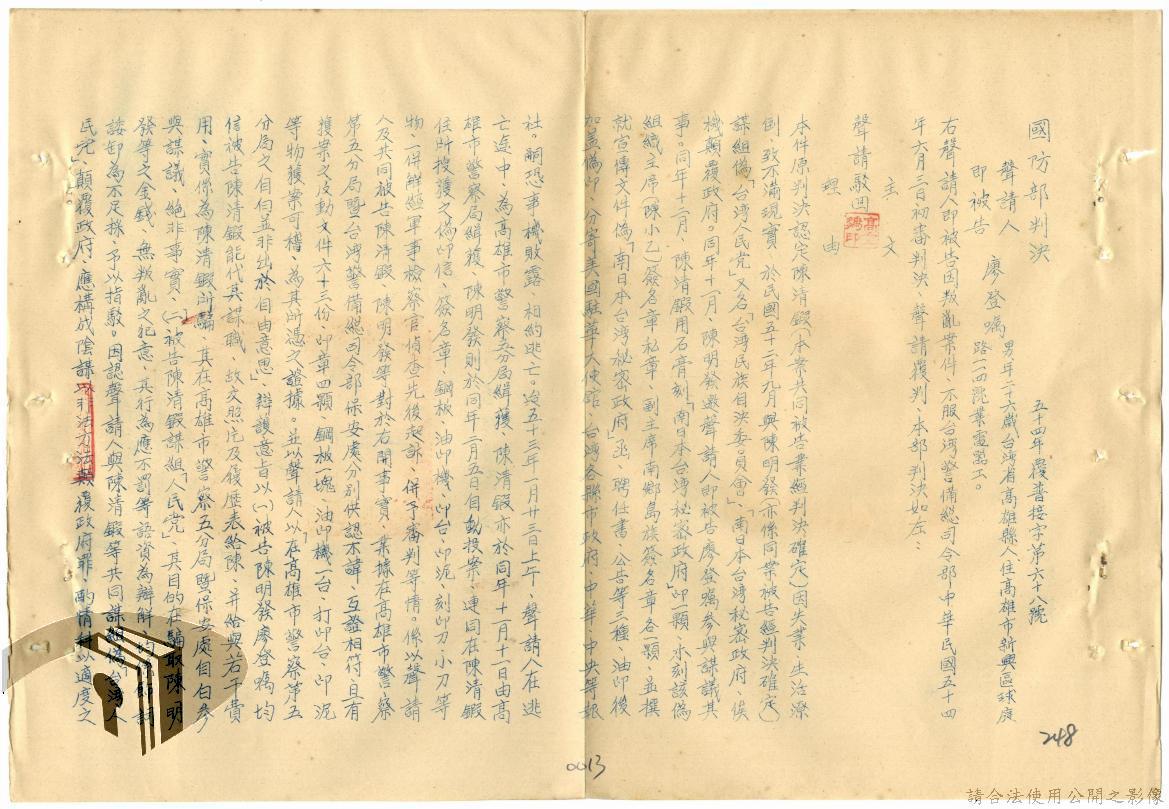 國防部判決
五十四年覆普接字第六十八號
聲請人
即被告 廖登囑 男年二十六歲台湾省高雄縣人住高雄市新興區球庭
路一四號業電器工。
右聲請人即被告因叛亂案件、不服台湾警备總司令部、中華民國五十四
年六月二日初審判決、聲請覆判、本部判決如左：
主文
聲請駁回
理由
本件原判決認定陳清鍛(本案共同被告業經判決確定)因失業、生活潦
倒、致不滿現實、於民國五十二年九月與陳明發(亦係同案被告經判決確定)
謀組偽「台湾人民党」又名「台湾民族自決委員會」、「南日本台湾秘密政府」、俟
機顛覆政府。同年十一月、陳明發邀聲請人即被告廖登囑參與謀議其
事。同年十二月、陳清鍛用石膏刻「南日本台湾秘密政府」印一顆、木刻該偽
組織主席(陳小乙)簽名章私章、副主席南鄉島族簽名章各一顆、並撰
就宣傳文件偽「南日本台湾秘密政府」函、聘任書、公告等三種、油印後
加盖偽印、分寄美國駐華大使館、台湾各縣市政府、中華、中央等報
社。嗣恐事機敗露、相約逃亡。迨五十三年一月廿三日上午、聲請人在逃
亡途中、為高雄市警察五分局緝獲、陳清鍛亦於同年十一月十一日由高
雄市警察局緝獲、陳明發則於同年二月五日自動投案、連同在陳清鍛
住所搜獲之偽印信、簽名章、鋼板、油印機、印台、印泥、刻印刀、小刀等
物、一併解經軍事檢察官偵查先後起訴、併予審判等情。係以聲請
人及共同被告陳清鍛、陳明發等、對於右開事實、業據在高雄市警察
第五分局暨台湾警備總司令部保安處分別供認不諱、互證相符、且有
獲案之反動文件六十三份、印章四顆、鋼板一塊、油印機一台、打印台、印泥
等物獲案可稽、為其所憑之證據。並以聲請人以「在高雄市警察第五
分局之自白並非出於自由意思」、辯護意旨以(一)被告陳明發廖登囑均
信被告陳清鍛能代其謀職、故交照片及履歷表給陳、并給與若干費
用、實係為陳清鍛所騙、其在高雄市警察五分局暨保安處自白參
與謀議、絕非事實、(二)被告陳清鍛謀組「人民党」、其目的在騙取陳明
發等之金錢、無叛亂之犯意、其行為應不罰等語資為辯解、均飾詞
諉卸為不足採、予以指駁。因認聲請人與陳清鍛等共同謀組偽「台湾人
民党」、顛覆政府、應構成陰謀以非法方法顛覆政府罪、酌情科以適度之
248
0013
請合法使用公開之影像